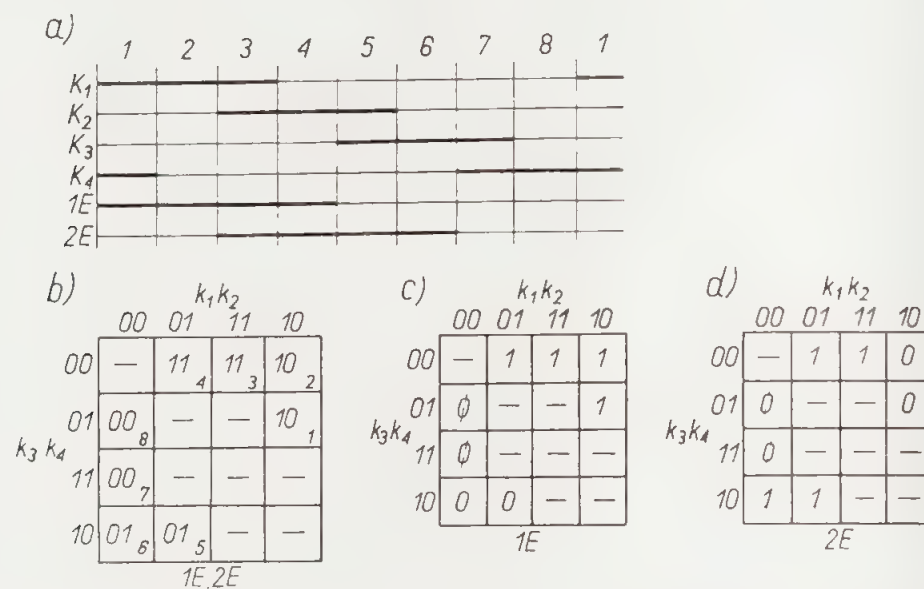 a)
1 2 3 4 5 6 7 8 1
K₁
K₂
K₃
K₄
1E
2E
b) k₁k₂
00 01 11 10
00 — 11 4 11 3 10 2
01 00 8 — — 10 1
k₃k₄
11 00 7 — — —
10 01 6 01 5 — —
1E,2E
c) k₁k₂
00 01 11 10
00 — 1 1 1
01 0 — — 1
k₃k₄
11 0 — — —
10 0 0 — —
1E
d) k₁k₂
00 01 11 10
00 — 1 1 0
01 0 — — 0
k₃k₄
11 0 — — —
10 1 1 — —
2E